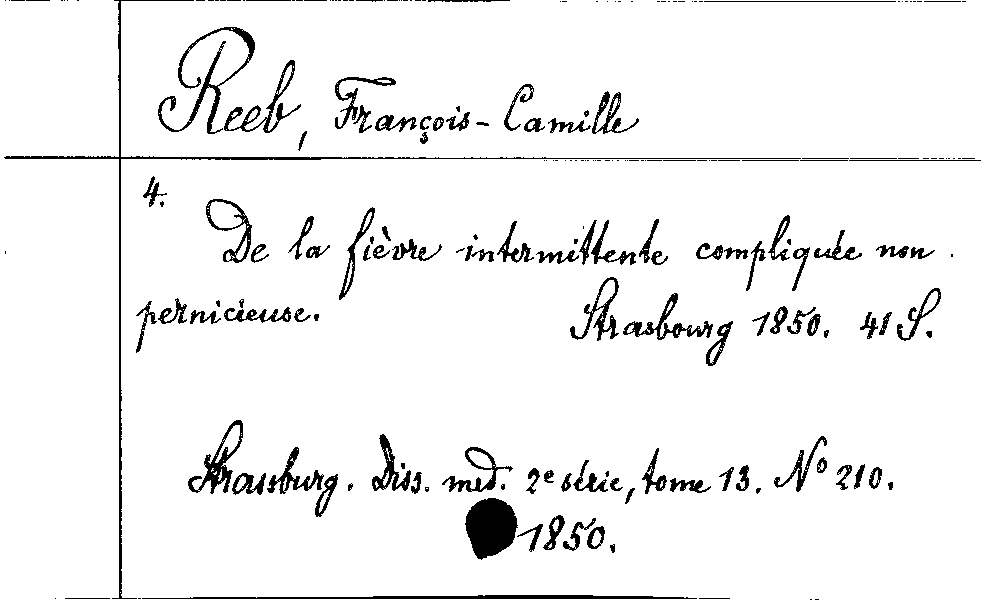 Reeb, François-Camille
4.
De la fièvre intermittente compliquée non
pernicieuse. Strasbourg 1850. 41 S.
Strassburg. Diss. med. 2e série, tome 13. No 210.
1850.